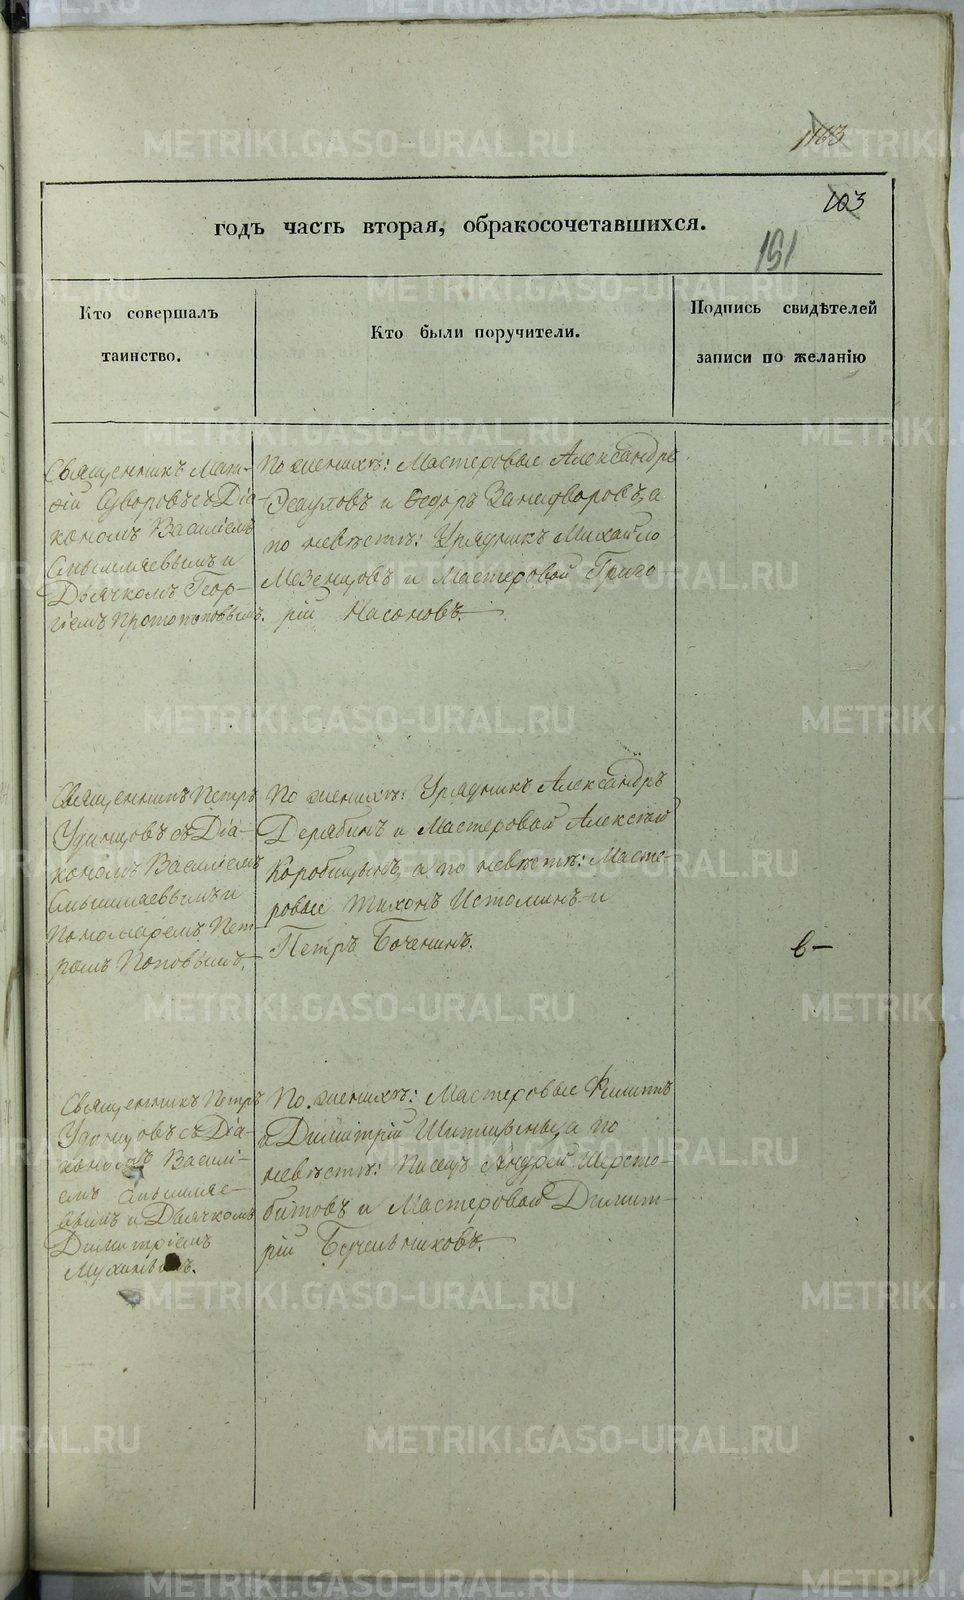 1163
103
годъ часть вторая, обракосочетавшихся.
191
Кто совершалъ
таинство.
Кто были поручители.
Подпись свидѣтелей
записи по желанію
Священникъ Мат-
ѳій Суворовъ съ Діа-
кономъ Василіемъ
Смышляевымъ и
Дьячкомъ Геор-
гіемъ Протопоповымъ.
По женихѣ: Мастеровые Александръ
Эсауловъ и Ѳедоръ Занадворовъ, а
по невѣстѣ: Урядникъ Михайло
Мезенцовъ и Мастеровой Григо-
рій Насоновъ.
Священникъ Петръ
Удинцовъ съ Діа-
кономъ Василіемъ
Смышляевымъ и
Пономаремъ Пет-
ромъ Поповымъ.
По женихѣ: Урядникъ Александръ
Дерябинъ и Мастеровой Алексѣй
Коробицынъ, а по невѣстѣ: Масте-
ровые Тихонъ Истоминъ и
Петръ Боченинъ.
Священникъ Петръ
Удинцовъ съ Діа-
кономъ Василі-
емъ Смышляе-
вымъ и Дьячкомъ
Димитріемъ
Мухинымъ.
По женихѣ: Мастеровые Филиппъ
и Димитрій Шипицыны, а по
невѣстѣ: Писецъ Андрей Шерсто-
битовъ и Мастеровой Димит-
рій
METRIKI.GASO-URAL.RU